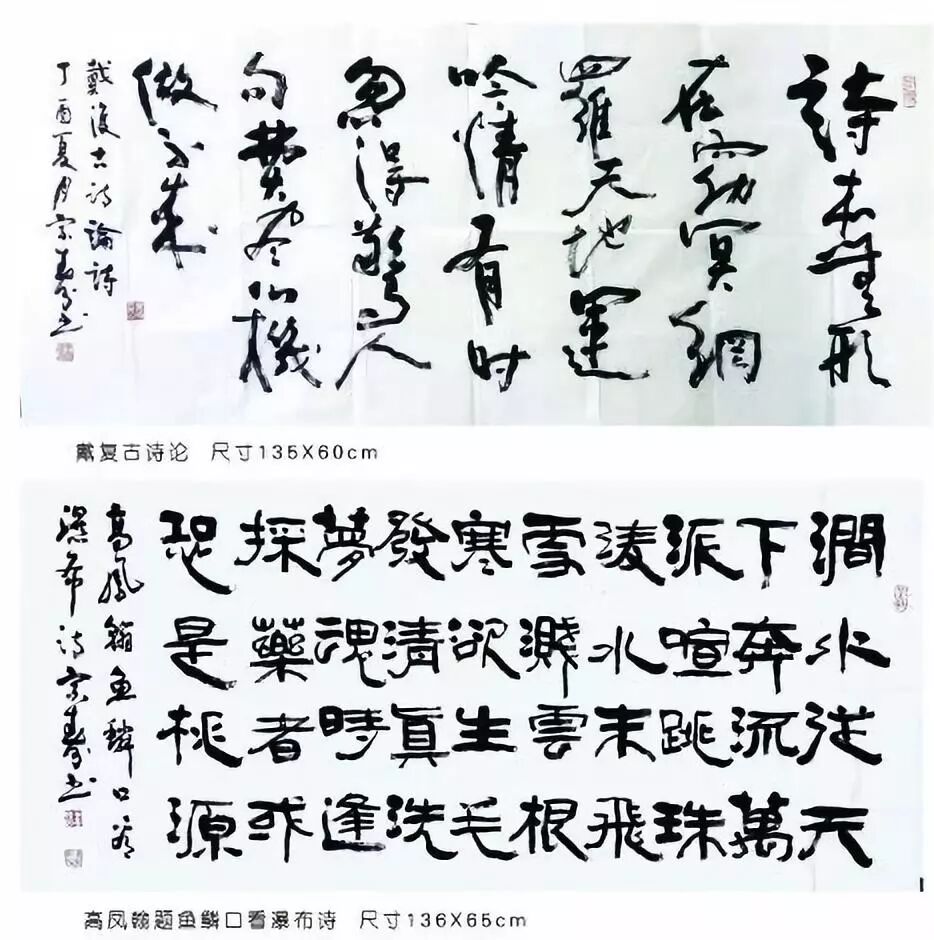 詩本無形
在窈冥網
羅天地運
吟情有时
忽得驚人
句費尽心機
做不来
戴復古詩論詩
丁酉夏月宗寿书
戴复古诗论 尺寸135X60cm
澗水從天
下奔流萬
派喧跳珠
淩水末飛
雪濺雲根
寒欲生毛
發清真洗
夢魂時逢
採藥者或
恐是桃源
高鳳翰魚鱗口看
瀑布诗宗寿书
高凤翰题鱼鳞口看瀑布诗 尺寸136X65cm